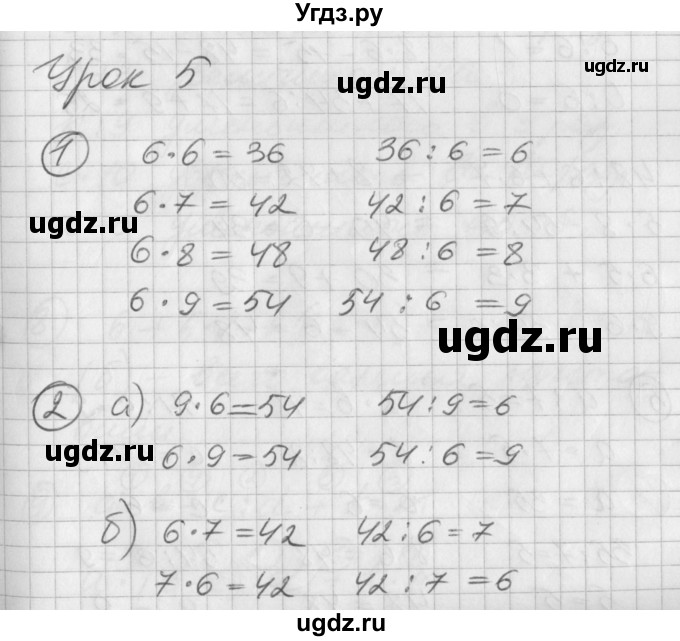 Угдз.ру
Урок 5
ugdz.ru
ugdz.ru
1 6·6=36 36:6=6
6·7=42 42:6=7
ugdz.ru
6·8=48 48:6=8
6·9=54 54:6=9
ugdz.ru
2 а) 9·6=54 54:9=6
ugdz.ru
6·9=54 54:6=9
б) 6·7=42 42:6=7
7·6=42 42:7=6
ugdz.ru